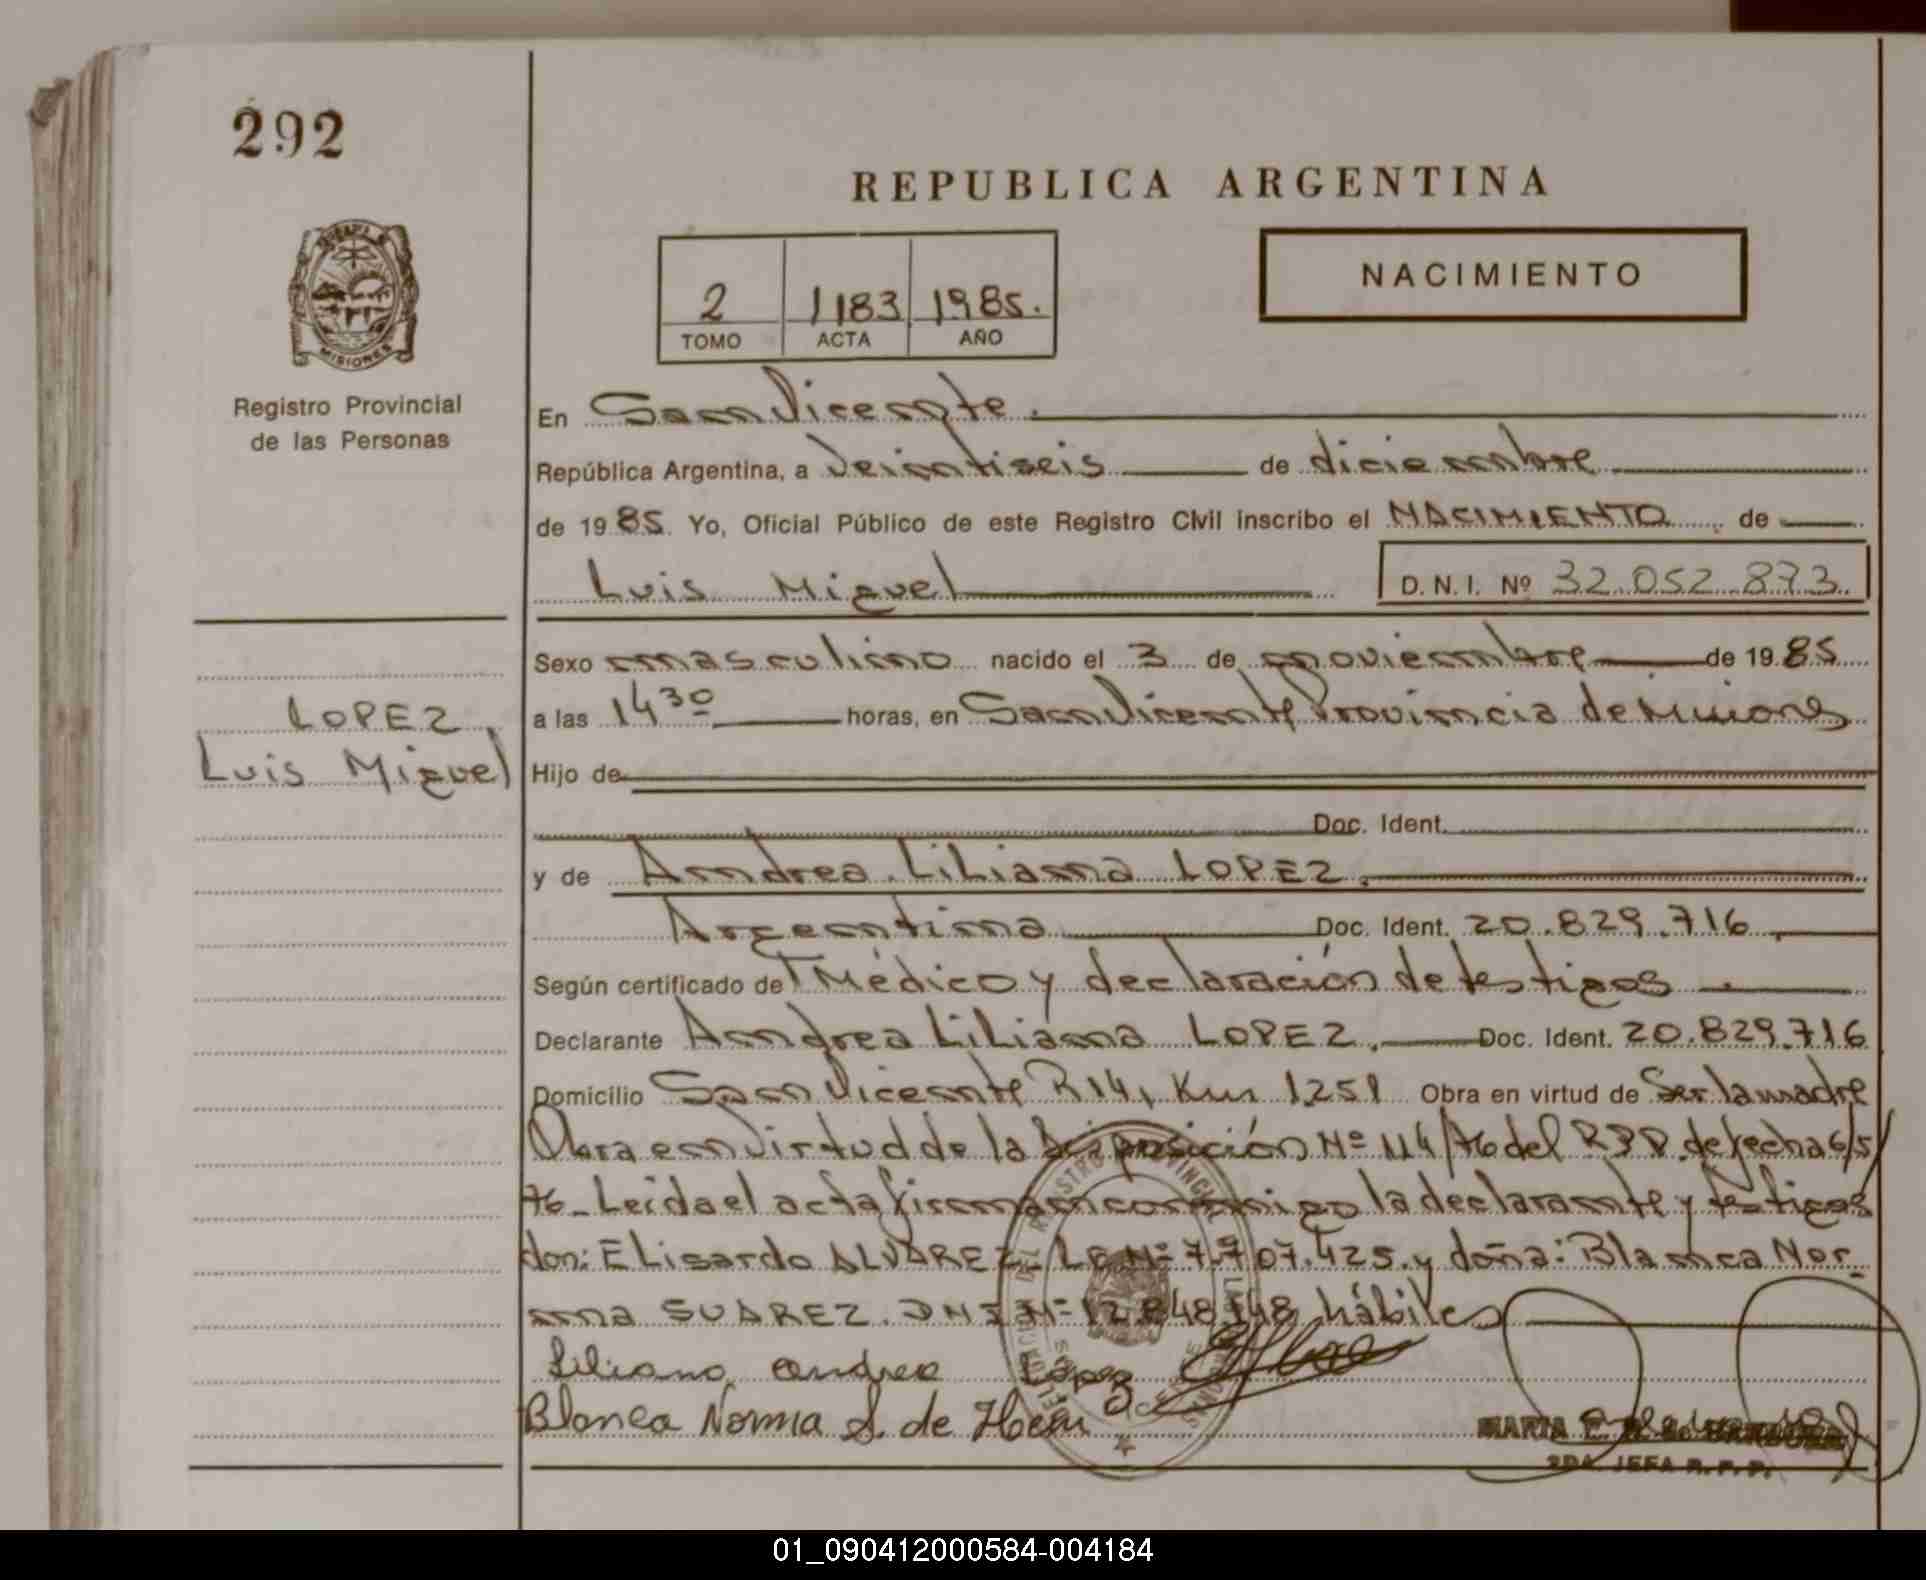 292
REPUBLICA ARGENTINA
NACIMIENTO
2 1183 1985.
TOMO ACTA AÑO
MISIONES
Registro Provincial
de las Personas
En San Vicente.
República Argentina, a Veintiseis de diciembre
de 1985. Yo, Oficial Público de este Registro Civil inscribo el NACIMIENTO de
Luis Miguel D.N.I. Nº 32.052.873
Sexo masculino nacido el 3 de noviembre de 1985
LOPEZ
Luis Miguel
a las 14 30 horas, en San Vicente Provincia de Misiones
Hijo de
Doc. Ident.
y de Andrea Liliana LOPEZ.
Argentina Doc. Ident. 20.829.716
Según certificado de Médico y declaración de testigos
Declarante Andrea Liliana LOPEZ. Doc. Ident. 20.829.716
Domicilio San Vicente R 14, Km 1.251 Obra en virtud de Ser la madre
Obra en virtud de la disposición Nº 114/76 del R.P.P. de fecha 6/5/
76_ Leída el acta firman conmigo la declarante y testigos
don: Elisardo ALVAREZ LE Nº 7.707.425. y doña: Blanca Nor_
ma SUAREZ. DNI Nº 12.848.148 hábiles
Liliana Andrea Lopez
Blanca Norma S. de
MARIA E.
JEFA R.P.P.
01_090412000584-004184